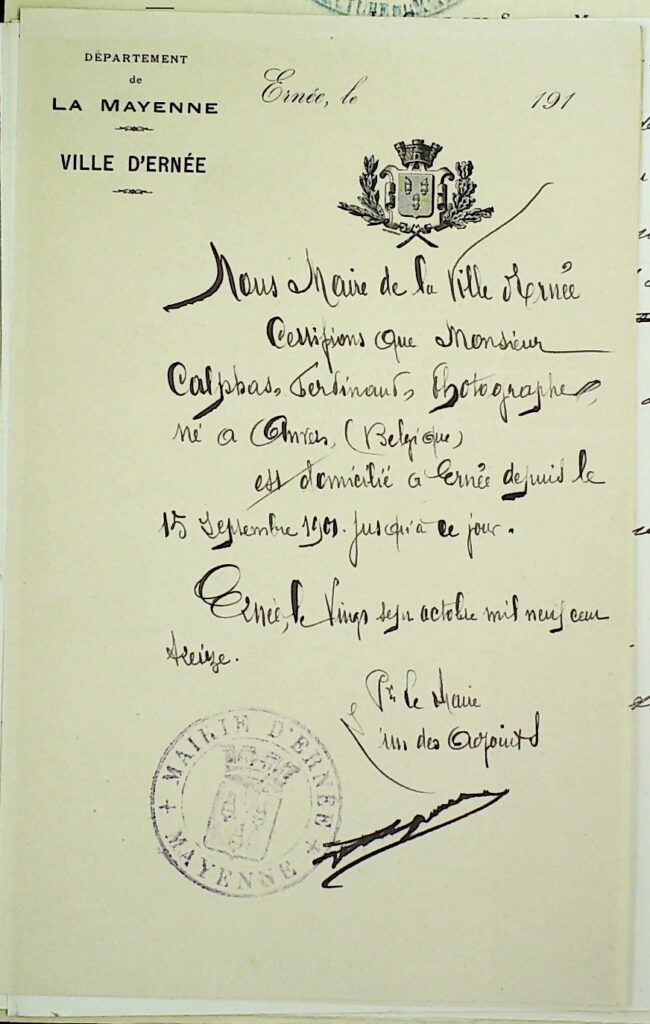 DÉPARTEMENT
de
LA MAYENNE
VILLE D'ERNÉE
Ernée, le 191
Nous Maire de la Ville d'Ernée
Certifions que Monsieur
Calphas, Ferdinand, Photographe,
né a Anvers, (Belgique)
est domicilié a Ernée depuis le
15 Septembre 1901. jusqu'à ce jour.
Ernée, le Vingt sept octobre mil neuf cent
treize.
Pr le Maire
un des Adjoints
MAIRIE D'ERNÉE
MAYENNE